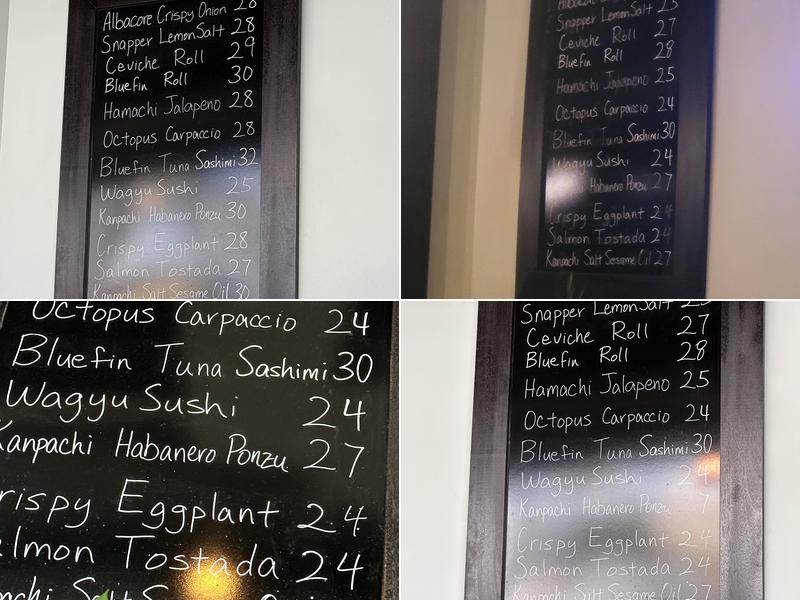 Albacore Crispy Onion 28
Snapper Lemon Salt 28
Ceviche Roll 29
Bluefin Roll 30
Hamachi Jalapeno 28
Octopus Carpaccio 28
Bluefin Tuna Sashimi 32
Wagyu Sushi 25
Kanpachi Habanero Ponzu 30
Crispy Eggplant 28
Salmon Tostada 27
Kanpachi Salt Sesame Oil 30
Snapper Lemon Salt 25
Ceviche Roll 27
Bluefin Roll 28
Hamachi Jalapeno 25
Octopus Carpaccio 24
Bluefin Tuna Sashimi 30
Wagyu Sushi 24
Habanero Ponzu 27
Crispy Eggplant 24
Salmon Tostada 24
Kanpachi Salt Sesame Oil 27
Octopus Carpaccio 24
Bluefin Tuna Sashimi 30
Wagyu Sushi 24
Kanpachi Habanero Ponzu 27
rispy Eggplant 24
lmon Tostada 24
Snapper Lemon Salt 25
Ceviche Roll 27
Bluefin Roll 28
Hamachi Jalapeno 25
Octopus Carpaccio 24
Bluefin Tuna Sashimi 30
Wagyu Sushi 24
Kanpachi Habanero Ponzu 7
Crispy Eggplant 24
Salmon Tostada 24
Kanpachi Salt Sesame Oil 27